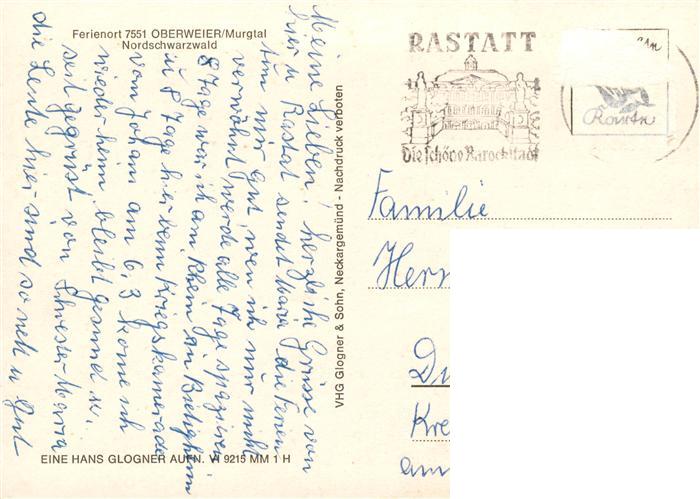 Ferienort 7551 OBERWEIER/Murgtal
Nordschwarzwald
Meine Lieben! herzliche Grüsse von
hier u Rastat sendet Maria die Ferien
tun mir gut, wen ich nur nicht
verwöhnt werde alle Tage spaziren
8 Tage war ich am Rhein in Bietigheim
u 8 Tage hier beim Kriegskamerade
vom Johann am 6,3 kome ich
wieder heim, bleibt gesund u.
seit gegrüst von Schwester Maria
die Leute hier sind so nett u Gut
EINE HANS GLOGNER AUFN. VI 9215 MM 1 H
VHG Glogner & Sohn, Neckargemünd - Nachdruck verboten
RASTATT
Die schöne Barockstadt
Karte
Familie
Herr
Kre
am